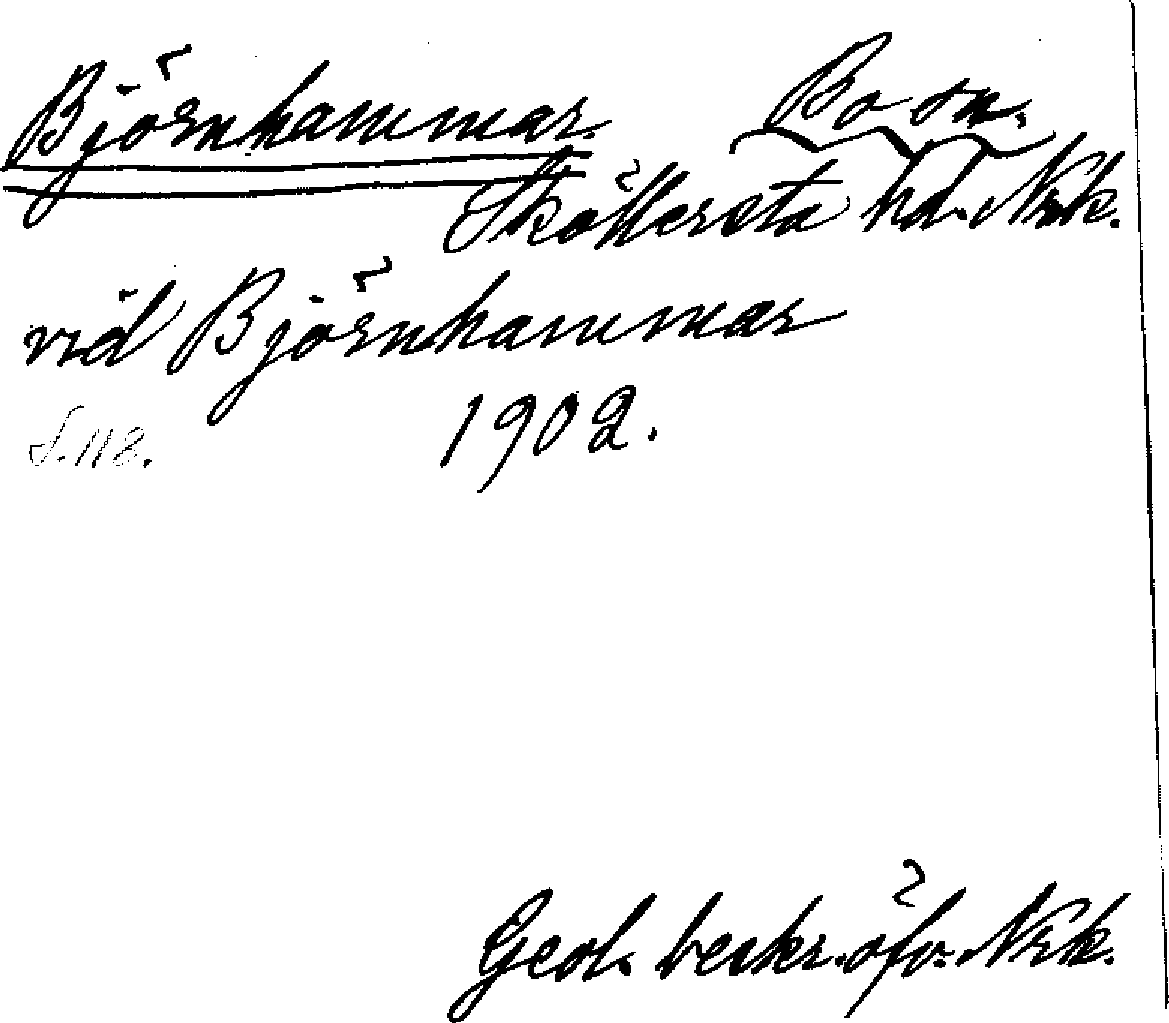 Björnhammar. Bo sn.
Sköllersta hd. Nrk.
vid Björnhammar
S. 118. 1902.
Geol. beskr. öfv. Nrk.